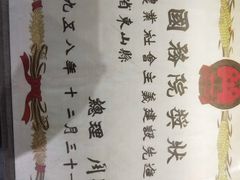 國務院獎狀
業社會主義建設先進
省東山縣
總理 周
九五八年十二月三十一